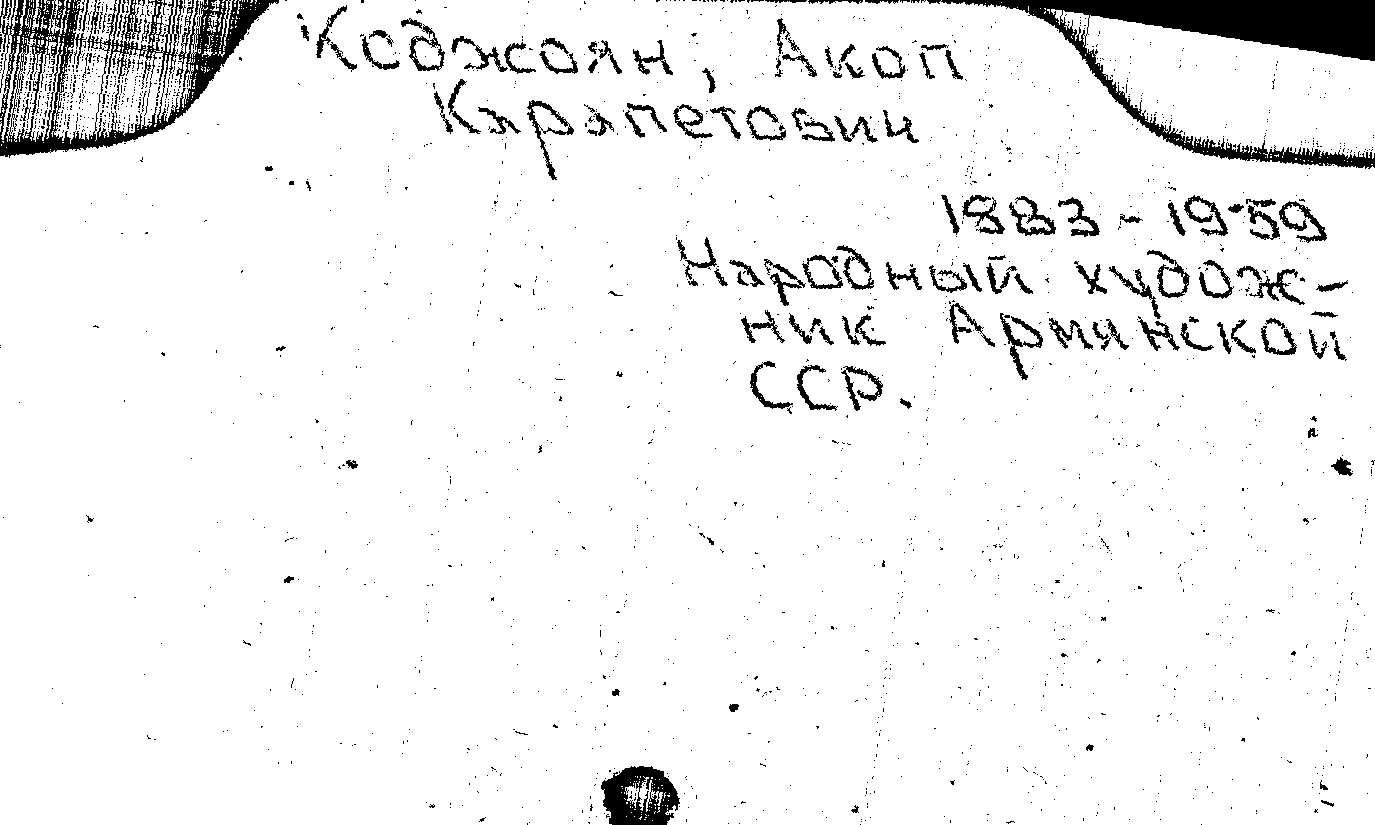 Коджоян, Акоп
Карапетович
1883-1959
Народный худож-
ник Армянской
ССР.